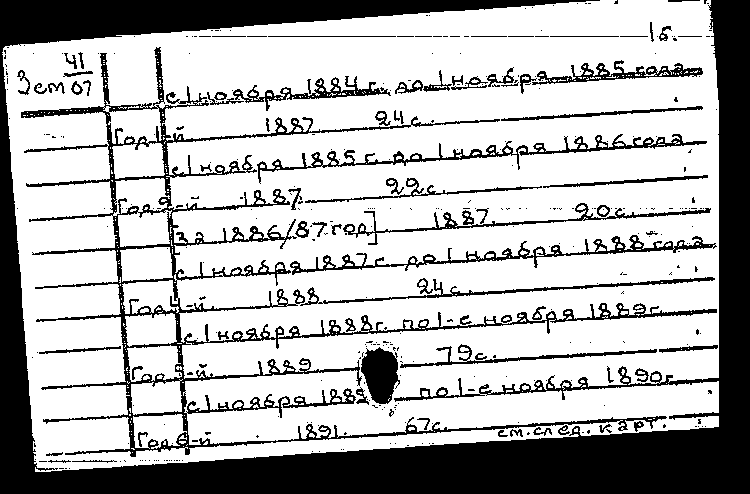 1б.
Зст 41/07
с 1 ноября 1884 г. до 1 ноября 1885 года
Год 1-й 1887 24с.
с 1 ноября 1885 г. до 1 ноября 1886 года
Год 2-й 1887. 22с.
[За 1886/87 год] 1887. 20с.
с 1 ноября 1887 г. до 1 ноября 1888 года
Год 4-й. 1888. 24с.
с 1 ноября 1888г. по 1-е ноября 1889г.
Год 5-й. 1889 79с.
с 1 ноября 1889 по 1-е ноября 1890г.
Год 6-й 1891. 67с.
см. след. карт.